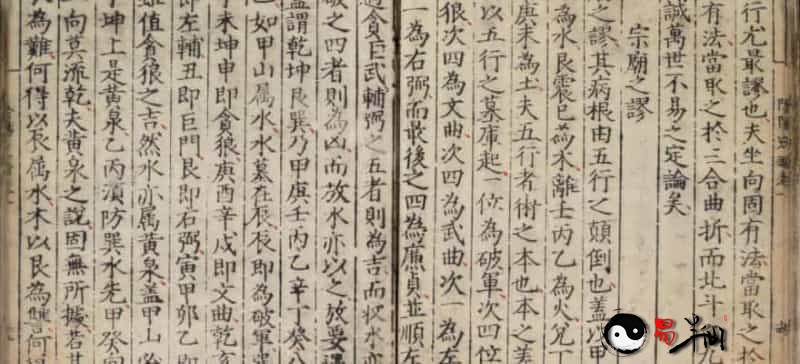 行尤最謬也夫坐向固有法當取之於
有法當取之於三合曲折而北斗
誠萬世不易之定論矣
宗廟之謬
之謬其病根由五行之顛倒也蓋以甲
為水艮震巳為木離壬丙乙為火兌丁
庚未為土夫五行者術之本也本之差
以五行之墓庫起一位為破軍次四位
狼次四為文曲次四為武曲次一為左
一為右弼而最後之四為廉貞並順左
貪巨武輔弼之五者則為吉而收水亦
破之四者則為凶而放水亦以之
蓋謂乾坤艮巽乃甲庚壬丙乙辛丁癸
也如甲山属水水墓在辰辰即為破軍
未坤申即貪狼庚酉辛戌即文曲乾亥
即左輔丑即巨門艮即右弼寅甲卯乙即
雖值貪狼之吉然水亦属黃泉蓋甲山
于坤上是黃泉乙丙須防巽水先甲癸向
向莫流乾夫黃泉之說固無所據若其
為難何得以辰属水木以艮為
易半仙